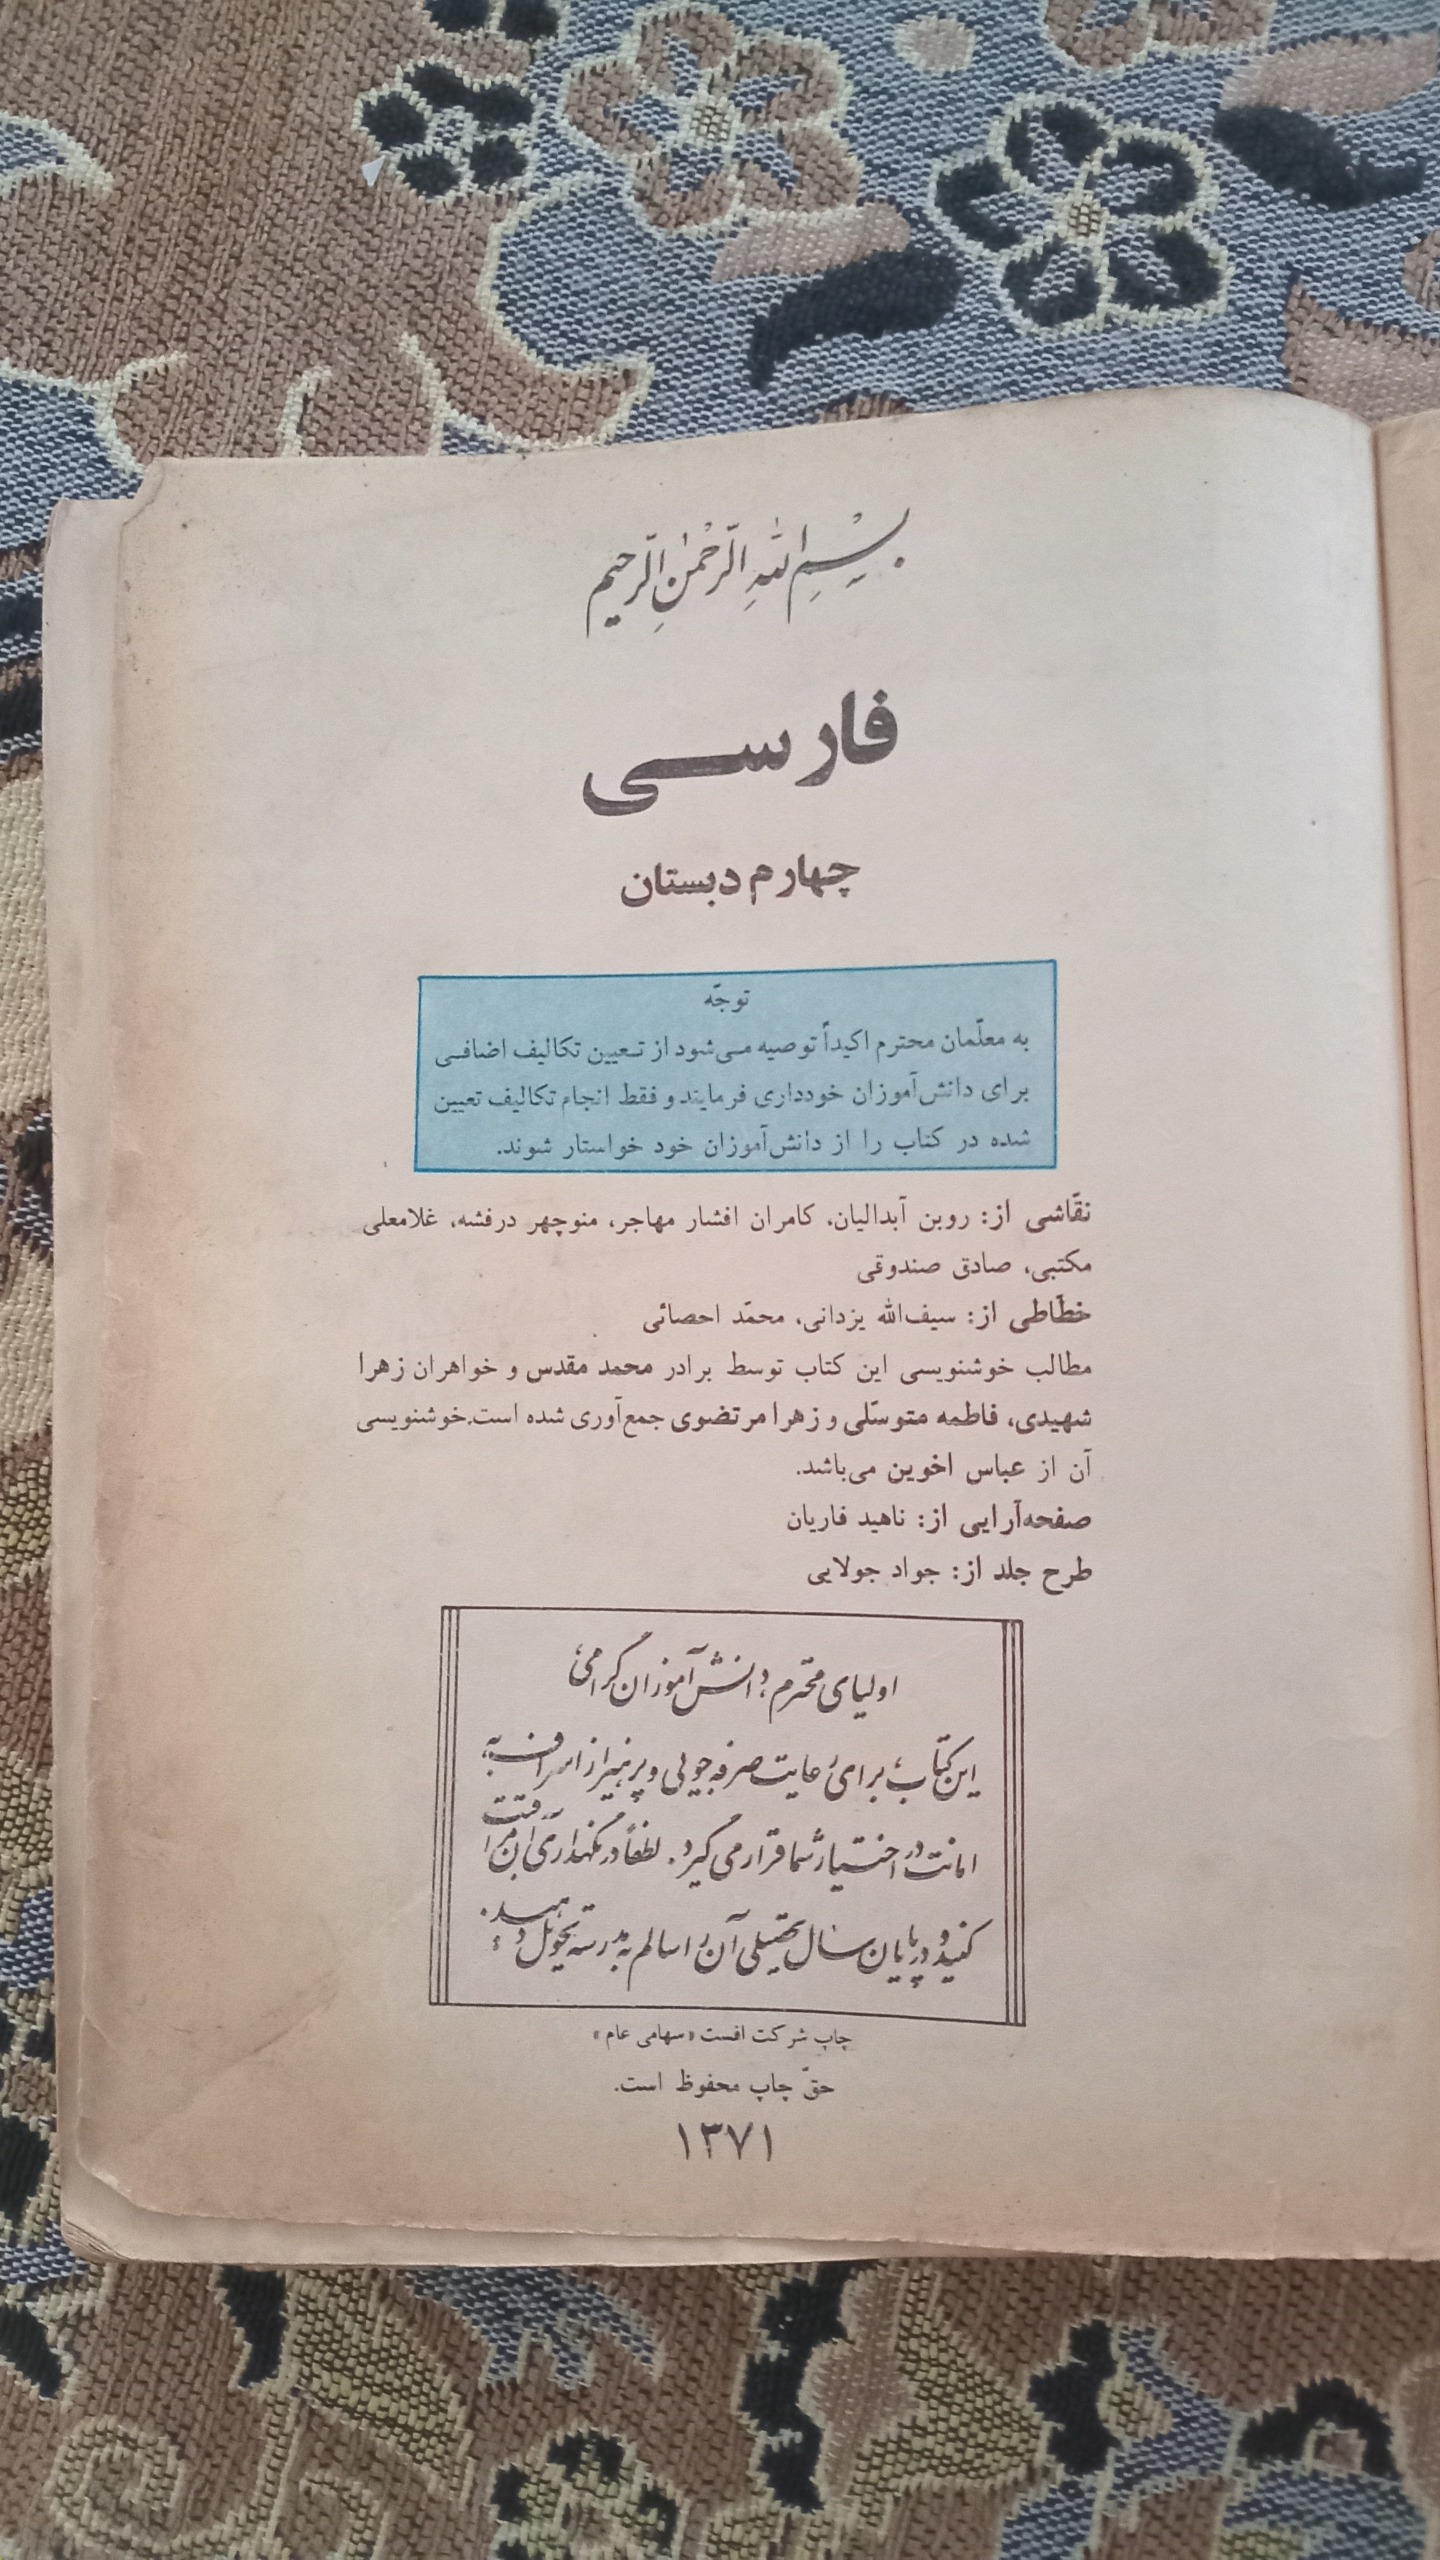 بِسْمِ اللهِ الرَّحْمٰنِ الرَّحیم
فارسی
چهارم دبستان
توجّه
به معلّمان محترم اکیداً توصیه می‌شود از تعیین تکالیف اضافی
برای دانش‌آموزان خودداری فرمایند و فقط انجام تکالیف تعیین
شده در کتاب را از دانش‌آموزان خود خواستار شوند.
نقّاشی از: روبن آبدالیان، کامران افشار مهاجر، منوچهر درفشه، غلامعلی
مکتبی، صادق صندوقی
خطّاطی از: سیف‌الله یزدانی، محمّد احصائی
مطالب خوشنویسی این کتاب توسط برادر محمد مقدس و خواهران زهرا
شهیدی، فاطمه متوسّلی و زهرا مرتضوی جمع‌آوری شده است. خوشنویسی
آن از عباس اخوین می‌باشد.
صفحه‌آرایی از: ناهید فاریان
طرح جلد از: جواد جولایی
اولیای محترم؛ دانش‌آموزان گرامی؛
این کتاب، برای رعایت صرفه‌جویی و پرهیز از اسراف به
امانت در اختیار شما قرار می‌گیرد. لطفاً در نگهداری آن مراقبت
کنید و در پایان سال تحصیلی آن را سالم به مدرسه تحویل دهید.
چاپ شرکت افست «سهامی عام»
حقّ چاپ محفوظ است.
۱۳۷۱